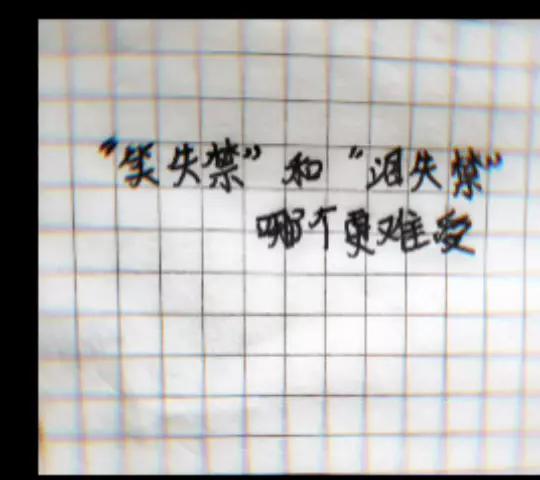 “笑失禁”和“泪失禁”
哪个更难受